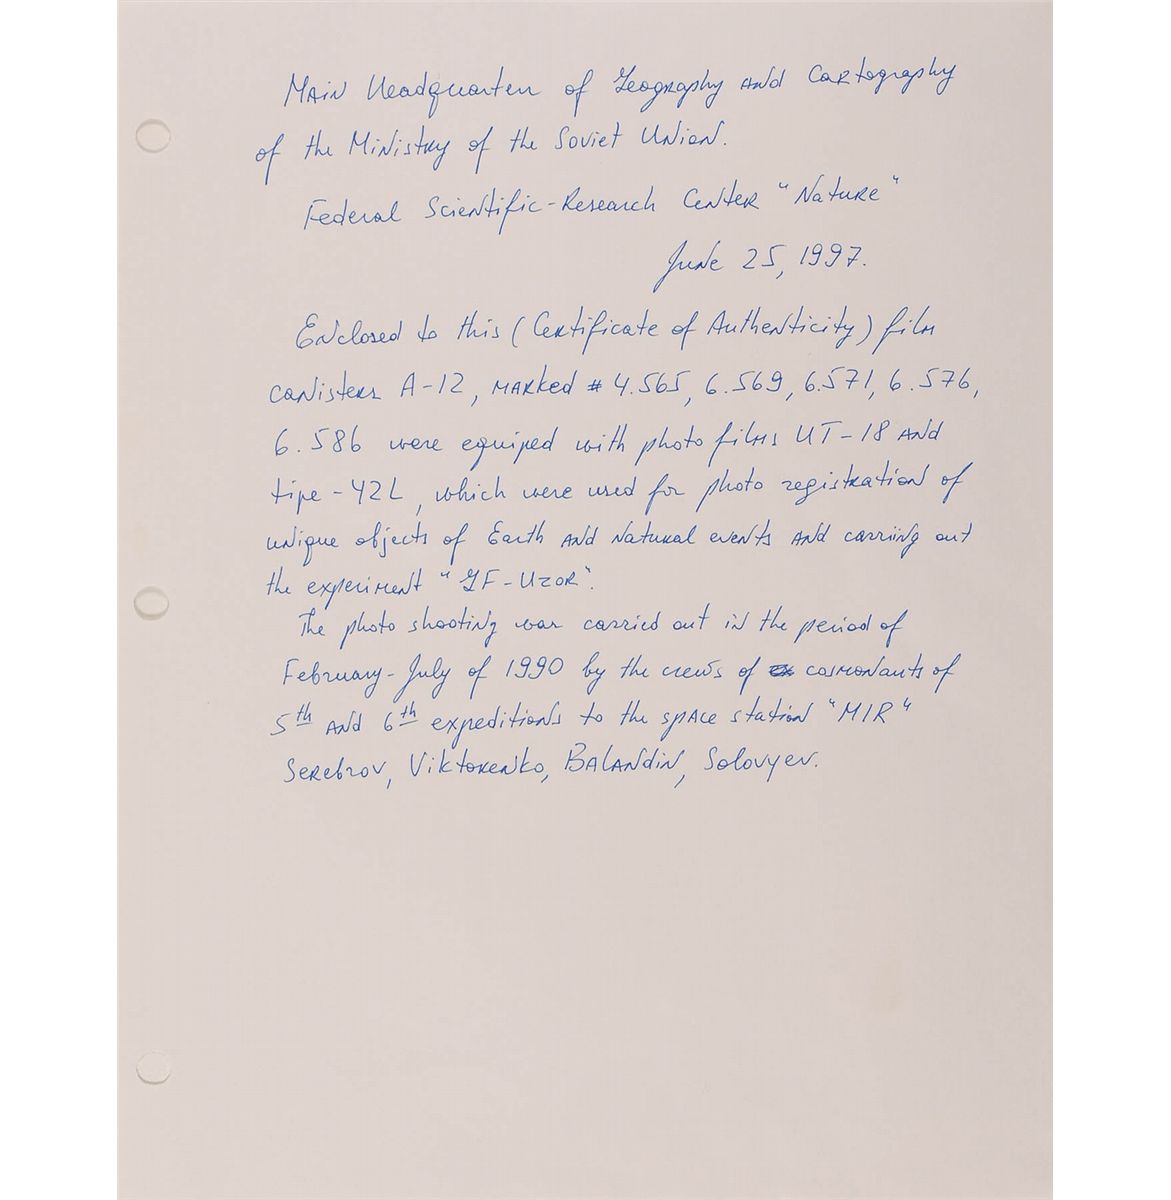 Main Headquarters of Geography and Cartography
of the Ministry of the Soviet Union.
Federal Scientific-Research Center "Nature"
June 25, 1997.
Enclosed to this (Certificate of Authenticity) film
canisters A-12, marked # 4.565, 6.569, 6.571, 6.576,
6.586 were equiped with photo films UT-18 and
tipe-42L, which were used for photo registration of
unique objects of Earth and natural events and carriing out
the experiment "GF-Uzor".
The photo shooting was carried out in the period of
February-July of 1990 by the crews of cosmonauts of
5th and 6th expeditions to the space station "MIR"
Serebrov, Viktorenko, Balandin, Solovyev.